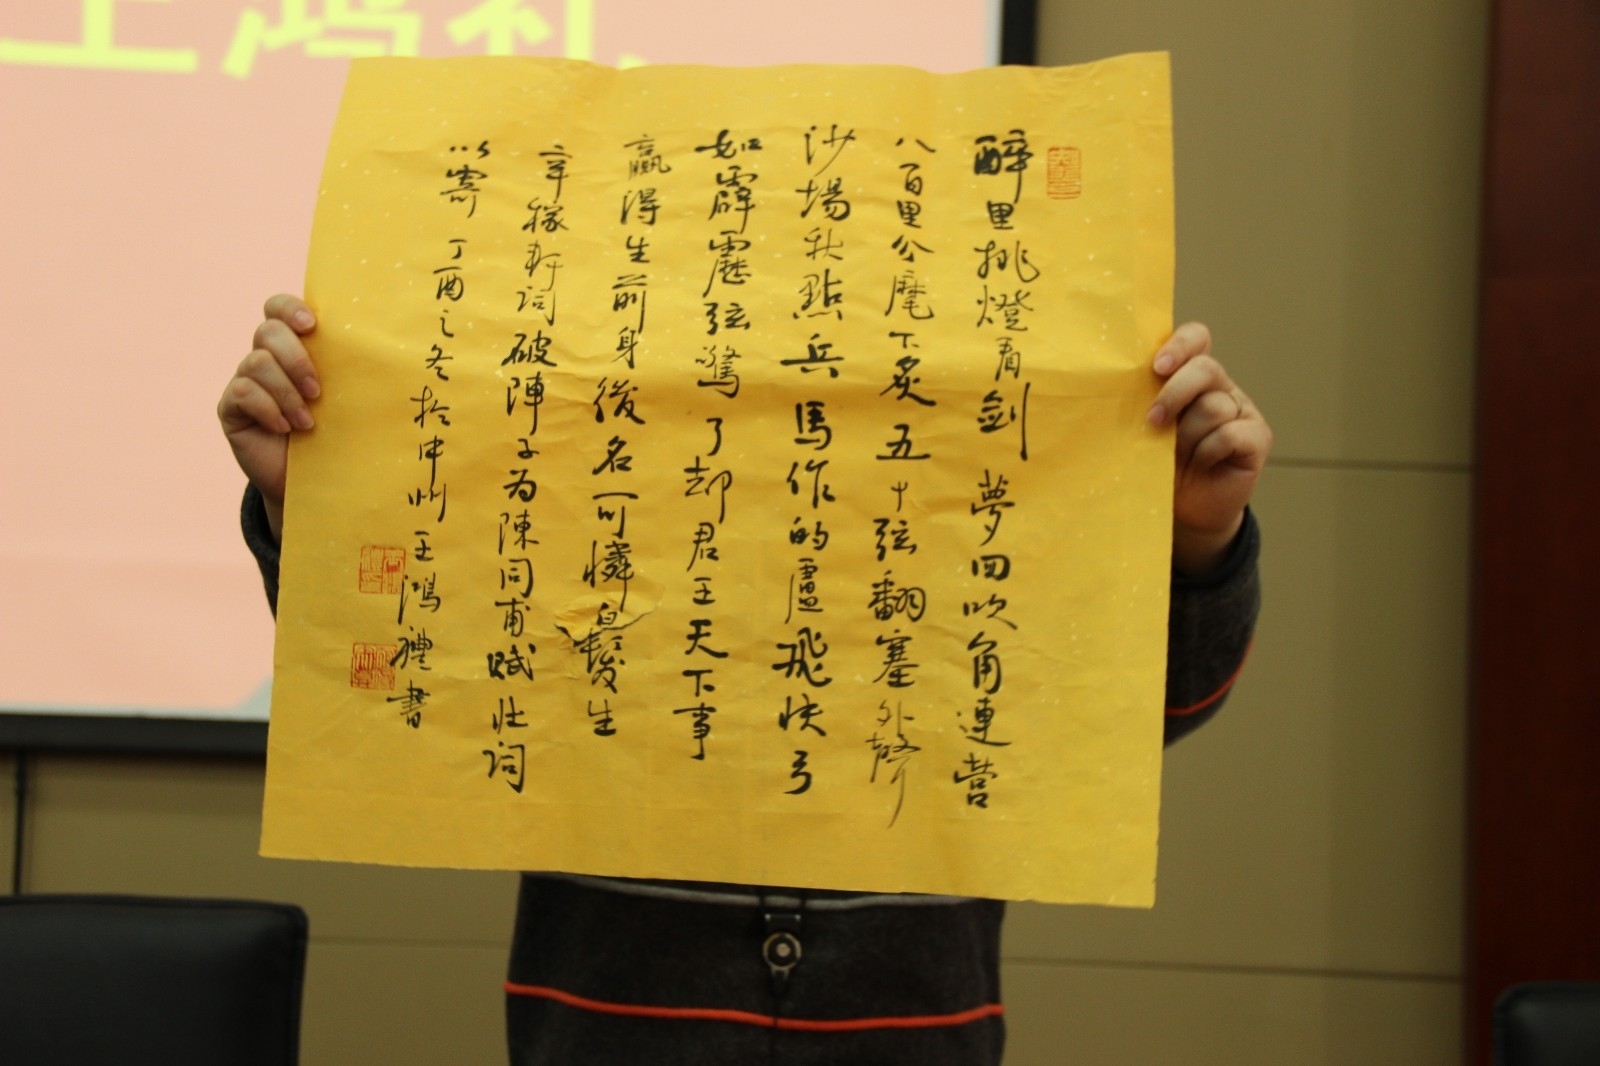 王鸿礼
醉里挑燈看劍 夢回吹角連营
八百里分麾下炙 五十弦翻塞外聲
沙場秋點兵 馬作的盧飛快弓
如霹靂弦驚 了却君王天下事
贏得生前身後名 可憐白髮生
辛稼軒词破陣子为陳同甫賦壮词
以寄 丁酉之冬於中州王鴻禮書